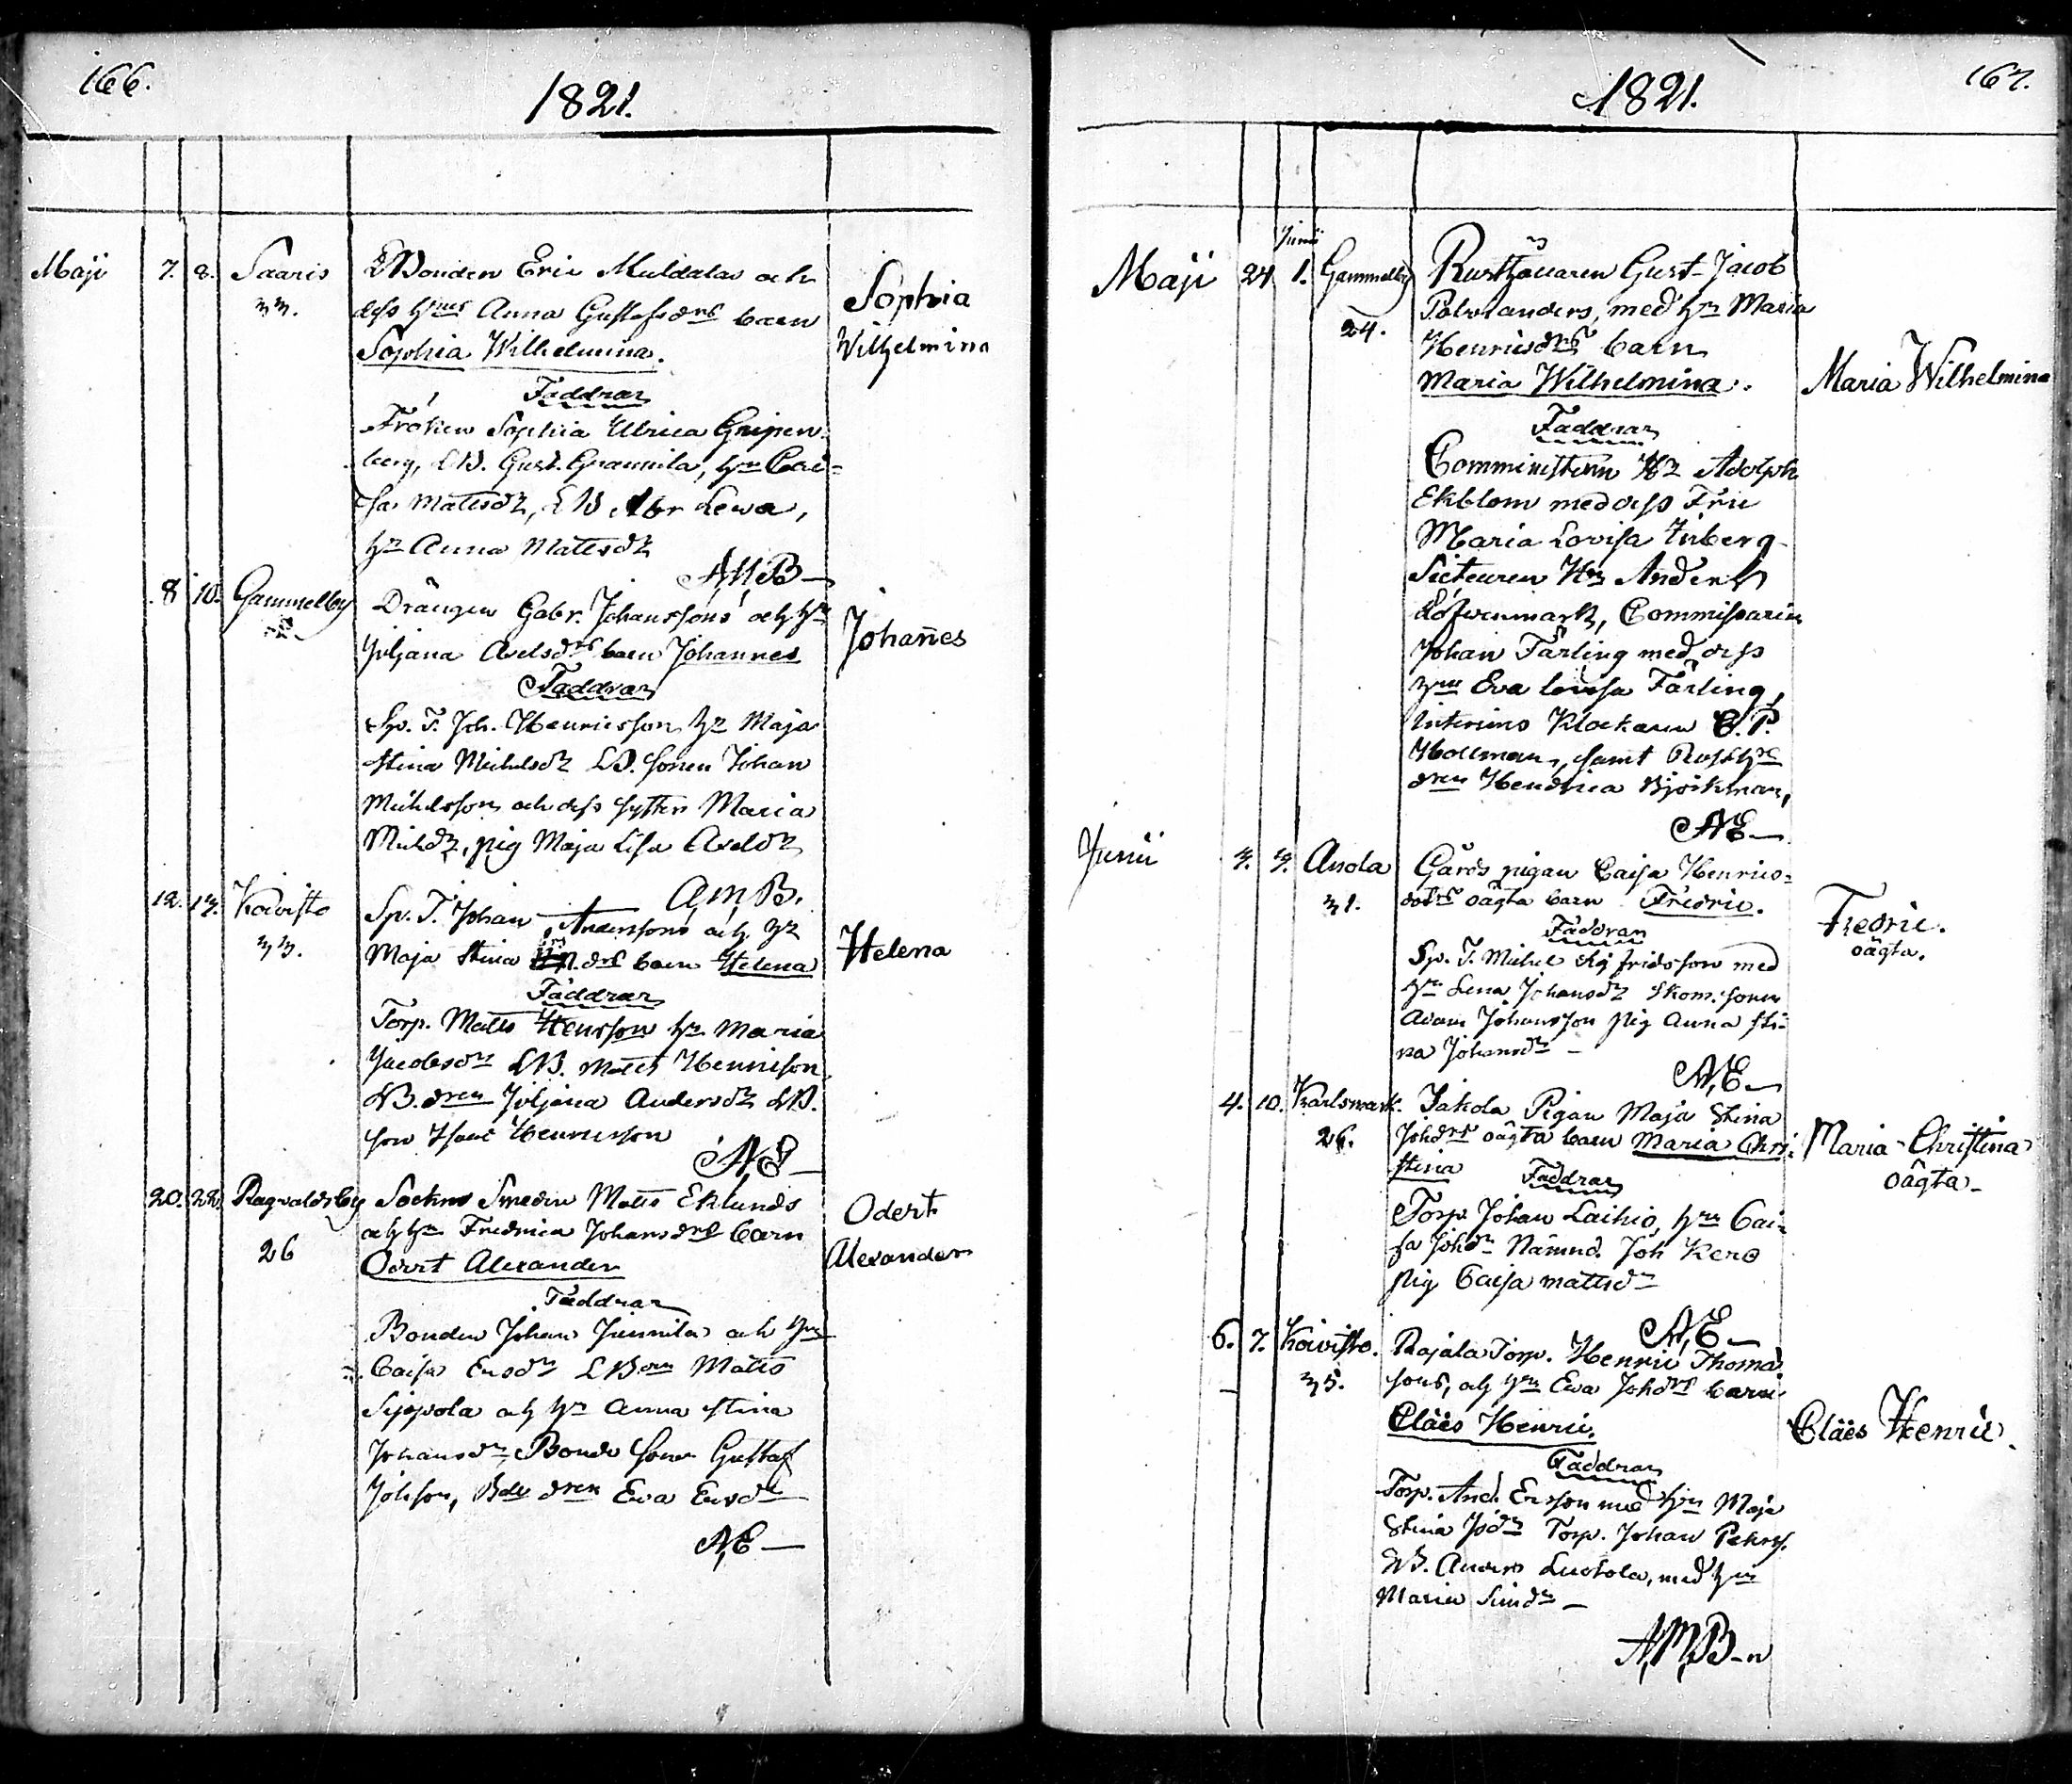 166.
1821.
Maji 7. 8. Saaris
33.
LBonden Eric Muldalas och
dess hus Anna Gustafsdrs barn
Sophia Wilhelmina.
Sophia
Wilhelmina
Faddrar
Fröken Sophia Ulrica Gripen-
berg, LB. Gust. Grannila, hu Cai-
sa Mattsdr, LB Abr Lewa,
hu Anna Mattsdr
AMB
8 10. Gammelby
Drängen Gabr. Johanssons och hu
Juljana Axelsdrs barn Johannes
Johan̄es
Faddrar
Sp. T. Joh. Henricsson hu Maja
Stina Michelsdr LB. sonen Johan
Michelsson och dess syster Maria
Michdr, pig Maja Lisa Axeldr
AMB.
12. 13. Koivisto
33.
Sp. T. Johan Anderssons och hu
Maja Stina drs barn Helena
Helena
Faddrar
Torp. Matts Henrsson hu Maria
Jacobsdr LB. Matts Henricson
LB. dren Juljana Andersdr LB.
son Isaac Henricsson
AE
20. 22. Ragvaldsby
26
Sockne Smeden Matts Eklunds
och hu Fredrica Johansdrs barn
Odert Alexander
Odert
Alexander
Faddrar
Bonden Johan Junnila och hu
Caisa Ersdr LBden Matts
Sippola och hu Anna Stina
Johansdr, Bonde sonen Gustaf
Johsson, Bde dren Eva Ersdr
AE
167.
1821.
Junii
Maji 24 1. Gammelby
24.
Rusthållaren Gust. Jacob
Polvianders, med hu Maria
Henricsdrs barn
Maria Wilhelmina.
Maria Wilhelmina
Faddrar
Comministern Hr Adolph
Ekblom med dess Fru
Maria Lovisa Inberg
Hr Anders
Löfwenmark, Commissarien
Johan Färling med dess
hu Eva Lovisa Färling,
interims Klockaren C. P.
Hollman, samt Rusth
dren Hendrica Björkman,
AE
Junii 3. 9. Anola
31.
Gårds pigan Caisa Henrics-
dotrs oägta barn Fredric.
Fredric.
oägta.
Faddrar
Sp. T. Michel Sigfridsson med
hu Lena Johansdr Skom. sonen
Adam Johansson pig Anna Sti-
na Johansdr
AE
4. 10. Karlsmark.
26.
Jakola Pigan Maja Stina
Johdrs oägta barn Maria Chri-
stina
Maria Christina
oägta
Faddrar
Torp. Johan Laihio, hu Cai-
sa Johdr Nämnd. Joh Kero
pig Caisa Mattsdr
AE
6. 7. Koivisto.
35.
Rajala Torp. Henric Thomas
sons, och hu Eva Johdrs barn
Claës Henric.
Claës Henric
Faddrar
Torp. And. Ersson med hu Maja
Stina Isdr Torp. Johan Pehrs.
LB. Anders Luotola, med hu
Maria Simdr
AMB-n